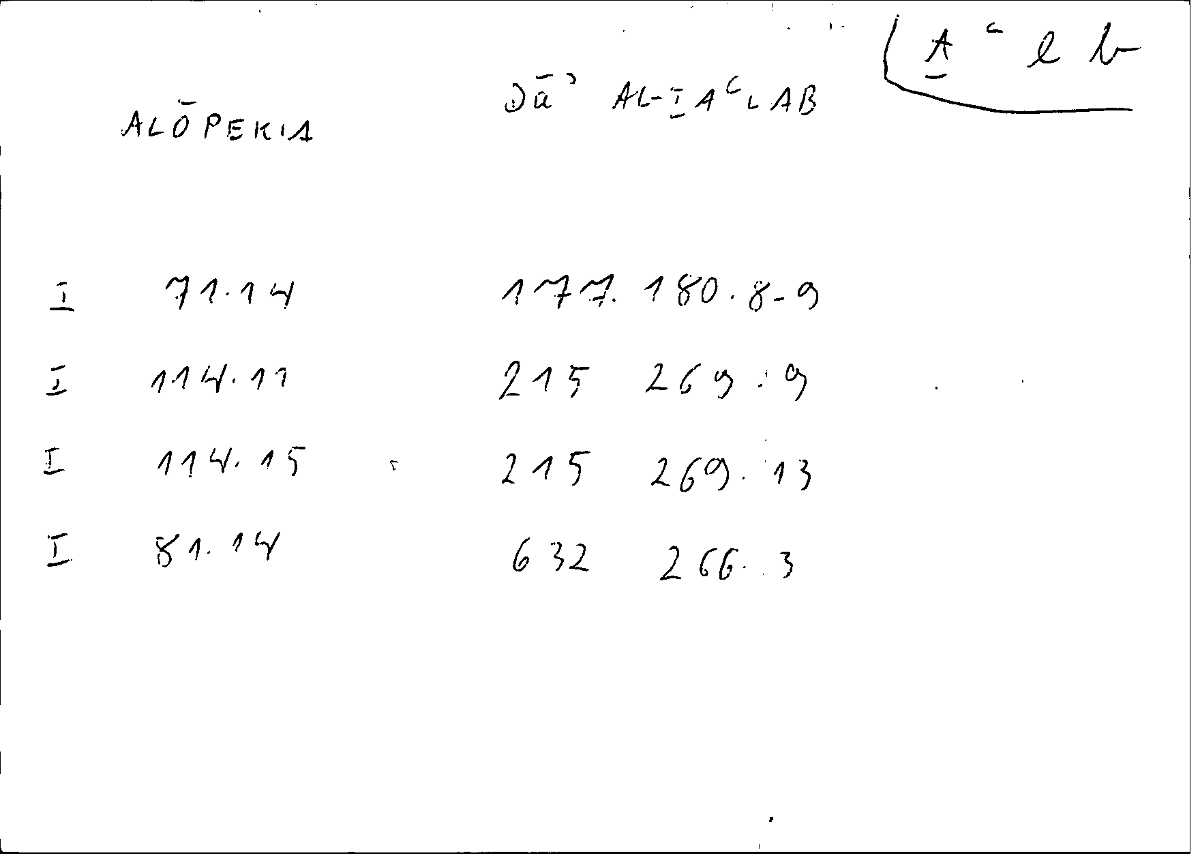 ṯ ʿ l b
ALŌPEKIA Dāʾ AL-ṮAʿLAB
I 71.14 177. 180.8-9
I 114.11 215 269.9
I 114.15 215 269.13
I 81.14 632 266.3